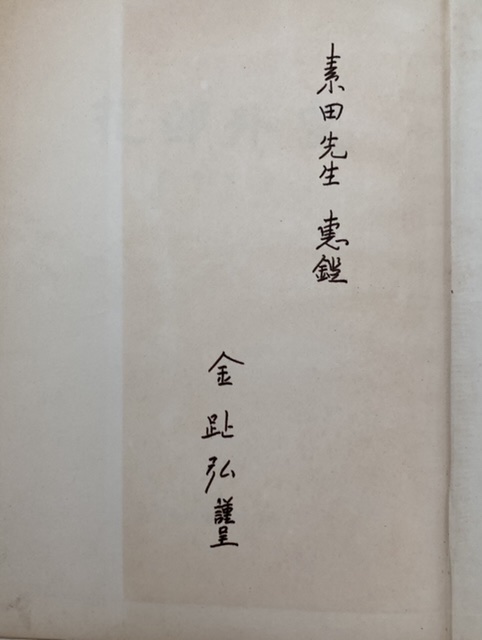 素田先生 惠鑑
金趾弘 謹呈